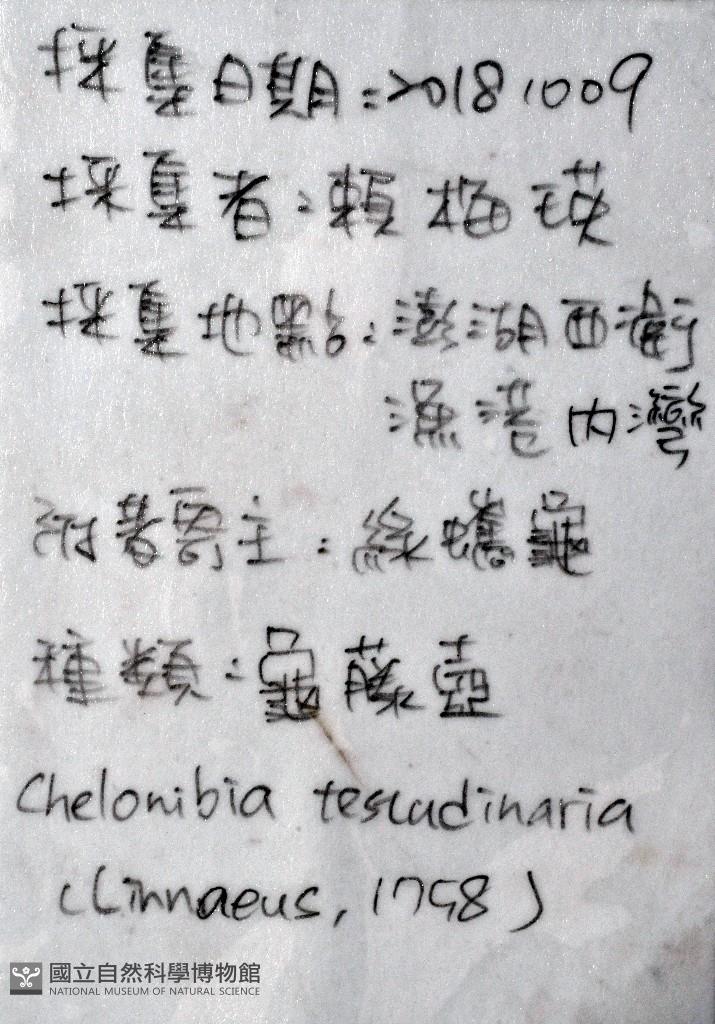 採集日期：20181009
採集者：賴梅瑛
採集地點：澎湖西衛
漁港內灣
附着寄主：綠蠵龜
種類：龜藤壺
Chelonibia testudinaria
(Linnaeus, 1758)
國立自然科學博物館
NATIONAL MUSEUM OF NATURAL SCIENCE